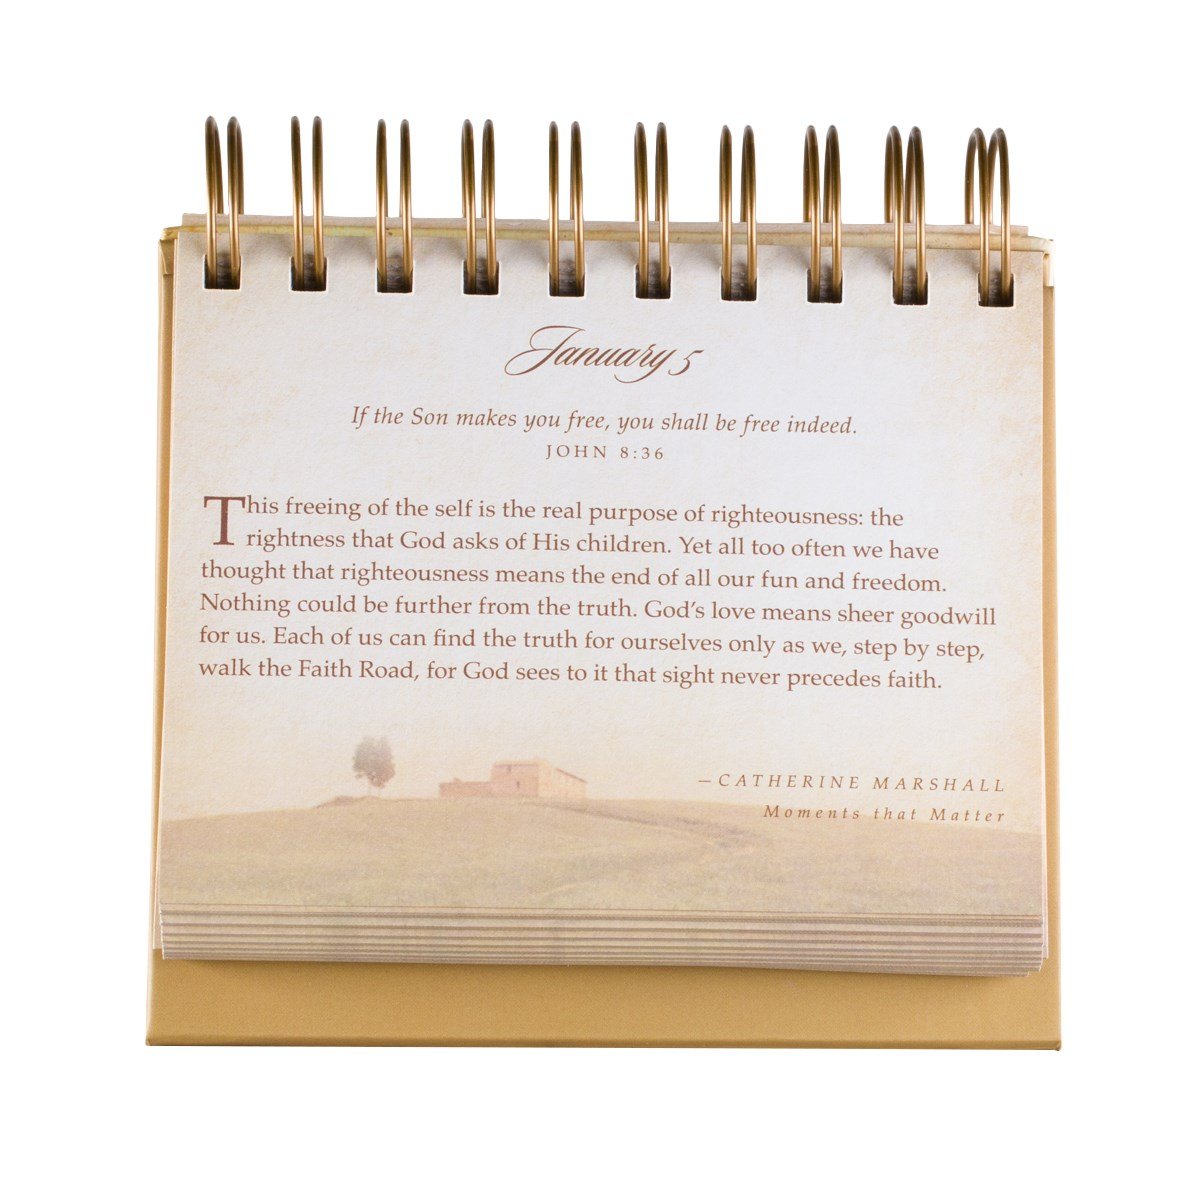 January 5
If the Son makes you free, you shall be free indeed.
JOHN 8:36
This freeing of the self is the real purpose of righteousness: the
rightness that God asks of His children. Yet all too often we have
thought that righteousness means the end of all our fun and freedom.
Nothing could be further from the truth. God's love means sheer goodwill
for us. Each of us can find the truth for ourselves only as we, step by step,
walk the Faith Road, for God sees to it that sight never precedes faith.
—CATHERINE MARSHALL
Moments that Matter